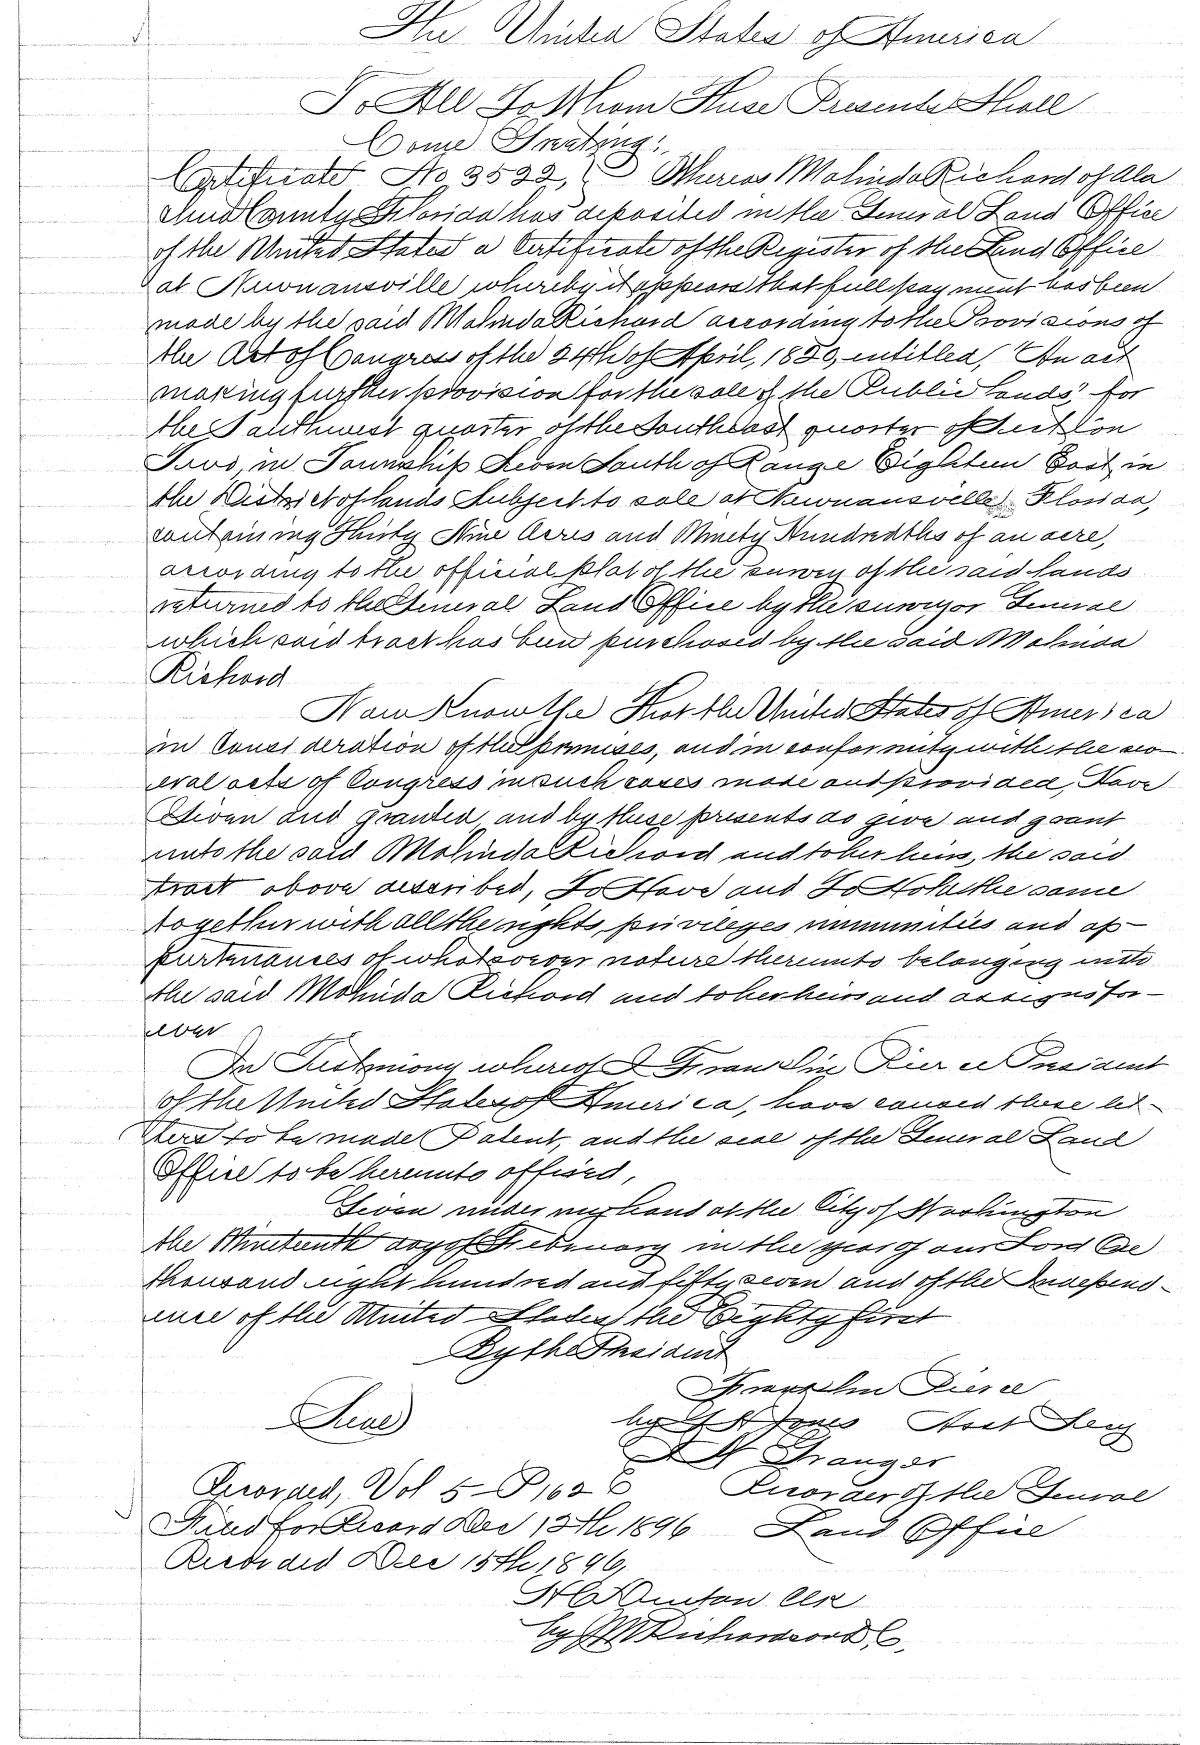 The United States of America
To All To Whom These Presents Shall
Come Greeting:
Certificate No 3522, Whereas Malinda Richard of Ala
chua County Florida has deposited in the General Land Office
of the United States a Certificate of the Register of the Land Office
at Newnansville whereby it appears that full payment has been
made by the said Malinda Richard according to the Provisions of
the Act of Congress of the 24th of April, 1820, entitled, "An act
making further provision for the sale of the Public Lands," for
the Southwest quarter of the Southeast quarter of Section
Two, in Township Seven South of Range Eighteen East in
the District of lands Subject to sale at Newnansville Florida,
containing Thirty Nine Acres and Ninety Hundredths of an acre,
according to the official plat of the survey of the said lands
returned to the General Land Office by the surveyor General
which said tract has been purchased by the said Malinda
Richard
Now Know Ye That the United States of America
in Consideration of the premises, and in conformity with the sev
eral acts of Congress in such cases made and provided, Have
Given and granted, and by these presents do give and grant
unto the said Malinda Richard and to her heirs, the said
tract above described, To Have and To Hold the same
together with all the rights, privileges immunities and ap-
purtenances of whatsoever nature thereunto belonging unto
the said Malinda Richard and to her heirs and assigns for-
ever
In Testimony whereof I Franklin Pierce President
of the United States of America, have caused these let-
ters to be made Patent, and the seal of the General Land
Office to be hereunto affixed,
Given under my hand at the City of Washington
the Nineteenth day of Febenary in the year of our Lord One
thousand eight hundred and fifty seven and of the Independ-
ence of the United States the Eighty first
By the President
Franklin Pierce
Seal by Jones Asst Secy
N Granger
Recorded, Vol 5 P 162 Recorder of the General
Filed for Record Dec 12th 1896 Land Office
Recorded Dec 15th 1896,
Clk
by Richardson D, C,